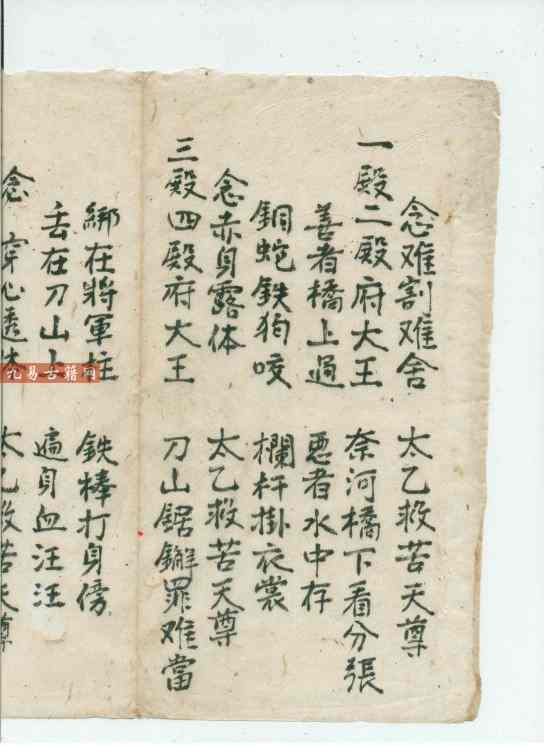 念难割难舍 太乙救苦天尊
一殿二殿府大王 奈河橋下看分張
善者橋上過 悪者水中存
銅蛇鉄狗咬 欄杆掛衣裳
念赤身露体 太乙救苦天尊
三殿四殿府大王 刀山鋸解罪难當
綁在將軍柱 鉄棒打身傍
丢在刀山上 遍身血汪汪
念穿心透体 太乙救苦天尊
九易古籍网